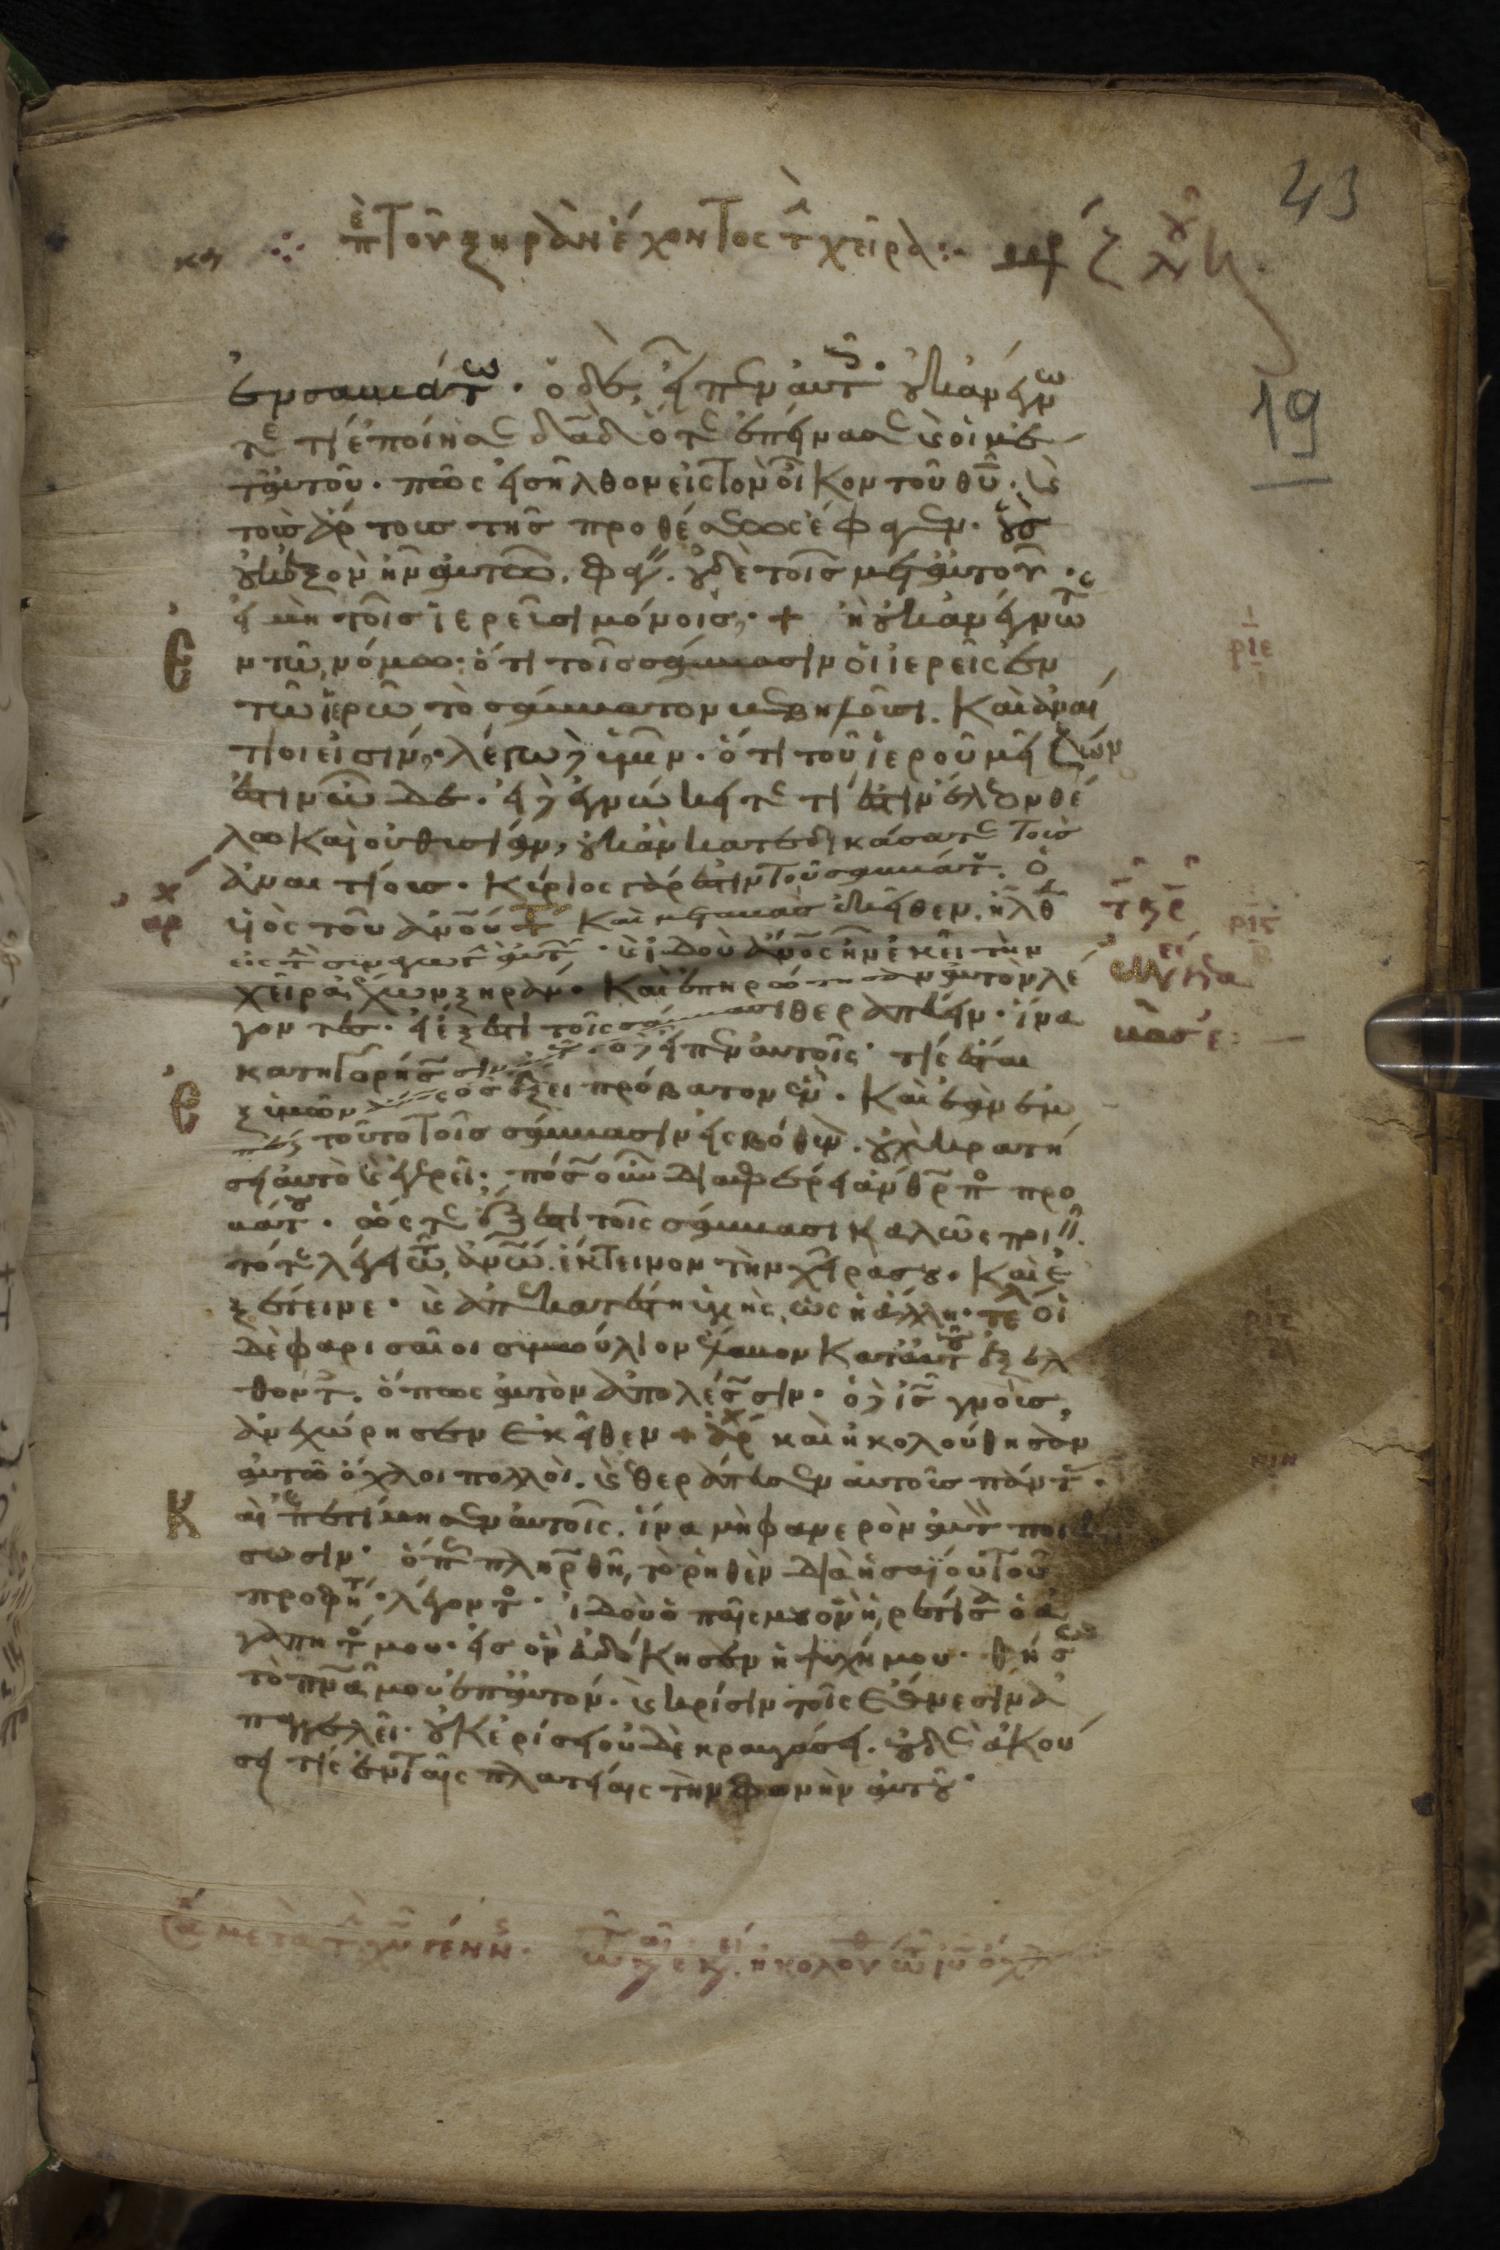 43
κα ⁘ ἐπὶ τοῦ ξηρὰν ἔχοντος τ χεῖρα :·
19
ἐν σαββάτω · ὁ δὲ, εἶπεν αὐτοῖς · οὐκ ἀνέγνω
τε τί ἐποίησε δαδ ὅτε ἐπείνασε κ οἱ με
τ αὐτοῦ · πῶς εἰσῆλθον εἰς τὸν οἶκον τοῦ θυ · κ
τοὺς ἄρτους τῆς προθέσεως ἔφαγεν · οὓς
οὐκ ἐξὸν ἦν αὐτῶ, φαγ · οὐδὲ τοῖς μετ αὐτοῦ ·
εἰ μὴ τοῖς ἱερεῦσι μόνοις · + ἢ οὐκ ἀνέγνωτε
ν τῶ νόμω · ὅτι τοῖς σάββασιν οἱ ἱερεῖς ἐν
τῶ ἱερῶ τὸ σάββατον βεβηλοῦσι. Καὶ ἀναί
τιοι εἰσιν · λέγω δὲ ὑμῖν · ὅτι τοῦ ἱεροῦ μείζων
ἐστιν ὧδε · εἰ δὲ ἐγνώκειτε τί ἐστιν ἔλεον θέ
λω καὶ οὐ θυσίαν, οὐκ ἂν κατεδικάσατε τοὺς
ἀναιτίους · κύριος γάρ ἐστιν τοῦ σαββάτου ὁ
υἱὸς τοῦ ανου + Καὶ μεταβὰς ἐκεῖθεν, ἦλθ
εἰς τ συναγωγ αὐτ · κ ἰδοὺ ανος ἦν ἐκεῖ τὴν
χεῖρα ἔχων ξηράν · Καὶ ἐπηρώτησαν αὐτὸν λέ
γοντες · εἰ ἔξεστι τοῖς σάββασι θεραπεύειν · ἵνα
κατηγορήσωσιν αὐτοῦ · ὁ δὲ εἶπεν αὐτοῖς · τίς ἔσται
ἐξ ὑμῶν ανος ὃς ἕξει πρόβατον ἕν · Καὶ ἐὰν ἐμ
πέση τοῦτο τοῖς σάββασιν εἰς βόθυν · οὐχὶ κρατή
σει αὐτὸ κ ἐγερεῖ · πόσω οὖν διαφέρει ανθρπο προ
βάτου · ὥστε ἔξεστι τοῖς σάββασι καλῶς ποι
τότε λέγει τῶ ανω · ἔκτεινον τὴν χεῖρα σου · Καὶ ἐ
ξέτεινε · κ ἀπεκατέστη ὑγιὴς ὡς ἡ ἄλλη · τελ οἱ
δὲ φαρισαῖοι συμβούλιον ἔλαβον κατ αὐτοῦ ἐξελ
θόντ, ὅπως αὐτὸν ἀπολέσωσιν · ὁ δὲ ις γνοὺς,
ἀνεχώρησεν ἐκεῖθεν + ἀρχ καὶ ἠκολούθησαν
αὐτῶ ὄχλοι πολλοὶ · κ ἐθεράπευσεν αὐτοὺς πάντ ·
Κ αὶ ἐπετίμησεν αὐτοῖς · ἵνα μὴ φανερὸν αὐτὸν ποιή
σωσιν · ὅπως πληρωθῆ, τὸ ῥηθὲν διὰ ἡσαϊου τοῦ
προφήτ · λέγοντο · ἰδοὺ ὁ παῖς μου ὃν ἡρέτισα ὁ ἀ
γαπητός μου · εἰς ὃν εὐδόκησεν ἡ ψυχή μου · θήσω
τὸ πνα μου ἐπ αὐτόν · κ κρίσιν τοῖς ἔθνεσιν ἀ
παγγελεῖ · οὐκ ἐρίσει οὐδὲ κραυγάσει · οὐδὲ ἀκού
σει τίς ἐν ταῖς πλατείαις τὴν φωνὴν αὐτοῦ ·